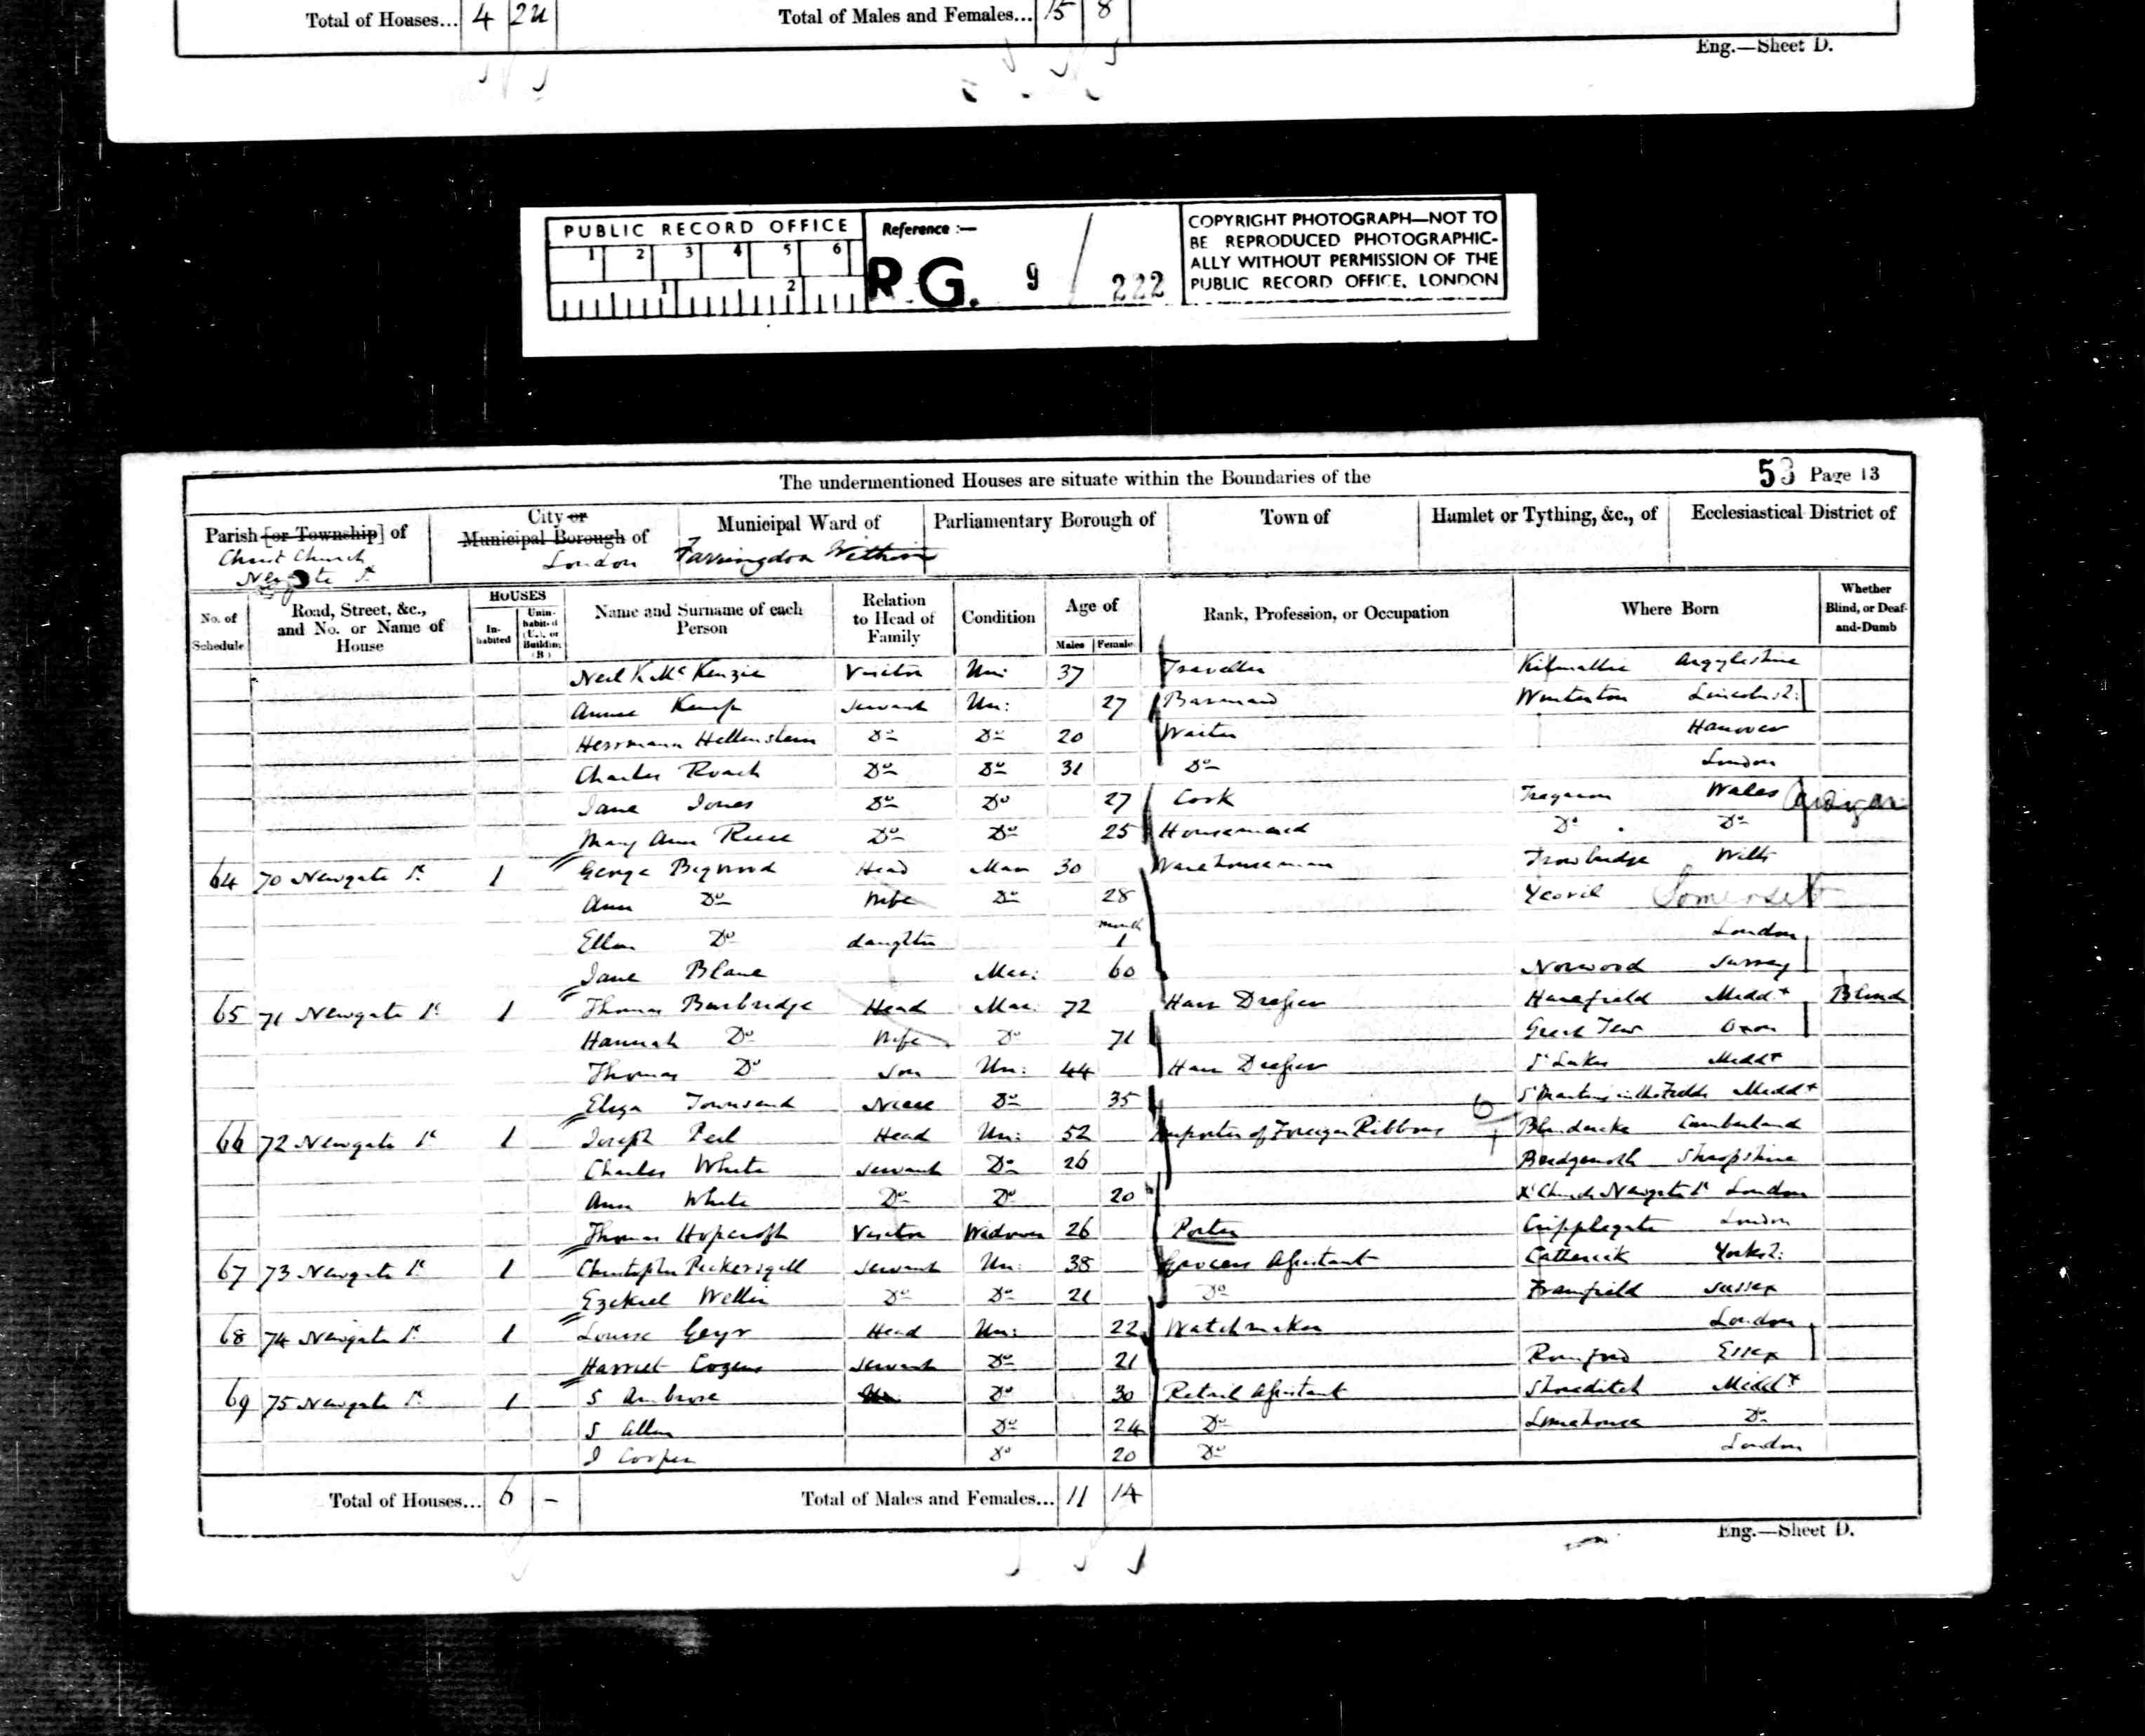 Total of Houses... 4 2U Total of Males and Females... 15 8
Eng.—Sheet D.
PUBLIC RECORD OFFICE
1 2 3 4 5 6
1 2
Reference :—
R.G. 9 / 222
COPYRIGHT PHOTOGRAPH—NOT TO
BE REPRODUCED PHOTOGRAPHIC-
ALLY WITHOUT PERMISSION OF THE
PUBLIC RECORD OFFICE, LONDON
The undermentioned Houses are situate within the Boundaries of the
53 Page 13
Parish [or Township] of
Christ Church
Newgate St
City or
Municipal Borough of
London
Municipal Ward of
Farringdon Within
Parliamentary Borough of
Town of
Hamlet or Tything, &c., of
Ecclesiastical District of
No. of
Schedule
Road, Street, &c.,
and No. or Name of
House
HOUSES
In-
habited
Unin-
habited
(U.), or
Building
(B.)
Name and Surname of each
Person
Relation
to Head of
Family
Condition
Age of
Males Females
Rank, Profession, or Occupation
Where Born
Whether
Blind, or Deaf-
and-Dumb
Neil K McKenzie Visitor Un: 37 Traveller Kilmallie Argyleshire
Annie Kemp Servant Un: 27 Barmaid Winterton Lincolns:
Herrmann Hellenstein Do Do 20 Waiter Hanover
Charles Roach Do Do 31 Do London
Jane Jones Do Do 27 Cook Tregaron Wales Cardigan
Mary Ann Reece Do Do 25 Housemaid Do Do
64 70 Newgate St 1 George Bigwood Head Mar 30 Warehouseman Trowbridge Wilts
Ann Do Wife Do 28 Yeovil Somerset
Ellen Do daughter month 1 London
Jane Blane Mar: 60 Norwood Surrey
65 71 Newgate St 1 Thomas Burbridge Head Mar: 72 Hair Dresser Harefield Middx Blind
Hannah Do Wife Do 71 Great Tew Oxon
Thomas Do Son Un: 44 Hair Dresser St Lukes Middx
Eliza Townsend Niece Do 35 St Martins in the Fields Middx
66 72 Newgate St 1 Joseph Peel Head Un: 52 Importer of Foreign Ribbons 6 Cumberland
Charles White Servant Do 26 Bridgenorth Shropshire
Ann White Do Do 20 Xt Church Newgate St London
Thomas Hopcroft Visitor Widower 26 Porter Cripplegate London
67 73 Newgate St 1 Christopher Pickersgill Servant Un: 38 Grocers Assistant Catterick Yorks:
Ezekiel Weller Do Do 21 Do Framfield Sussex
68 74 Newgate St 1 Louise Geyr Head Un: 22 Watchmaker London
Harriet Cozens Servant Do 21 Romford Essex
69 75 Newgate St 1 S Ambrose Do 30 Retail Assistant Shoreditch Middx
S Allen Do 24 Do Limehouse Do
J Cooper Do 20 Do London
Total of Houses... 6 – Total of Males and Females... 11 14
Eng.—Sheet D.